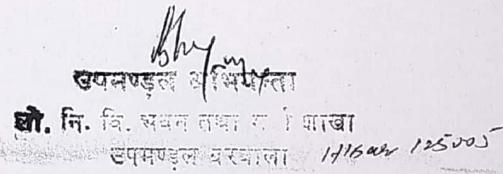 उपमण्डल अभियन्ता
लो. नि. वि. भवन तथा शाखा
उपमण्डल बरवाला 125005